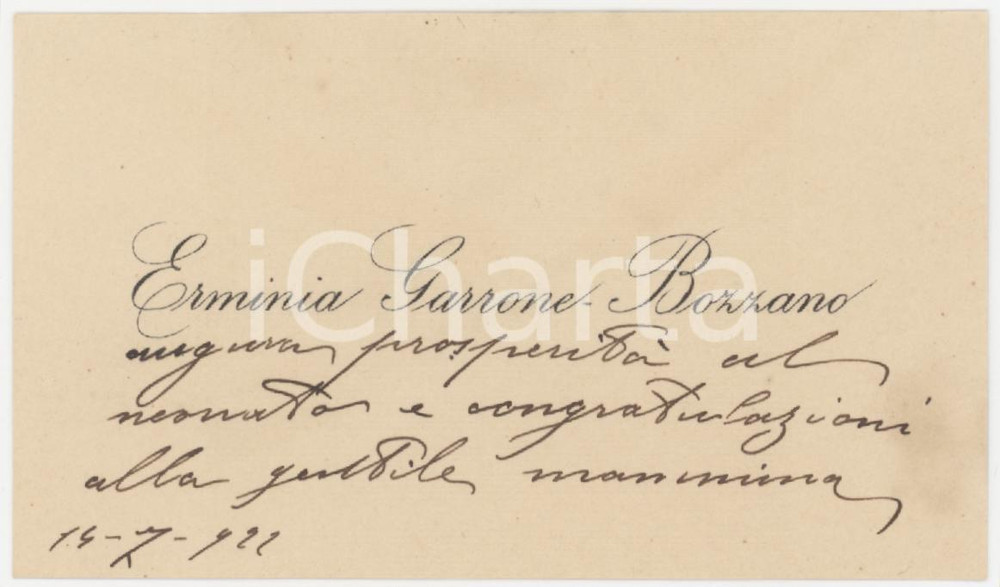 iCharta
Erminia Garrone-Bozzano
augura prosperità al
neonato e congratulazioni
alla gentile mammina
14-7-922